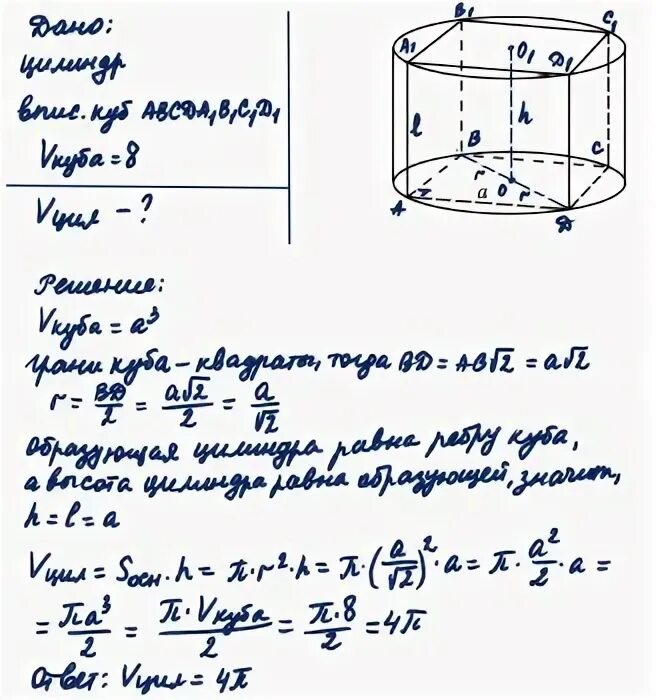 Дано:
цилиндр
впис. куб ABCDA₁B₁C₁D₁
Vкуба = 8
Vцил – ?
B₁
C₁
A₁
O₁
D₁
l
h
B
C
r
a
O
r
A
D
Решение:
Vкуба = a³
Грани куба – квадраты, тогда BD = AB√2 = a√2
r = BD/2 = a√2/2 = a/√2
Образующая цилиндра равна ребру куба,
а высота цилиндра равна образующей, значит,
h = l = a
Vцил = Sосн · h = π · r² · h = π · (a/√2)² · a = π · a²/2 · a =
= πa³/2 = π · Vкуба/2 = π · 8/2 = 4π
Ответ: Vцил = 4π